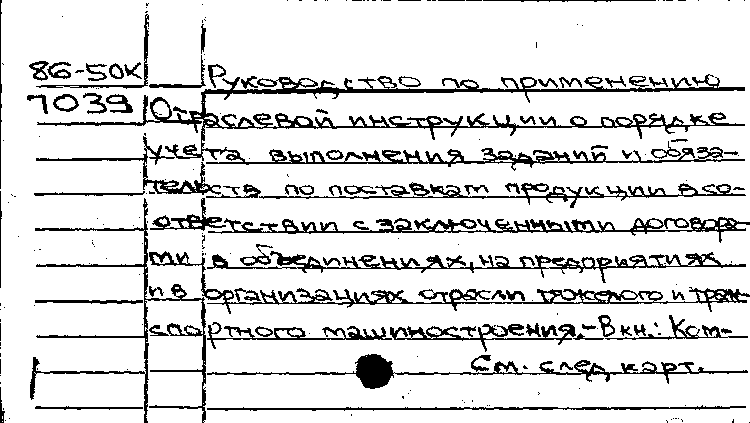 86-50К Руководство по применению
7039 Отраслевой инструкции о порядке
учета выполнения заданий и обяза-
тельств по поставкам продукции в со-
ответствии с заключенными договора-
ми в объединениях, на предприятиях
и в организациях отрасли тяжелого и тран-
спортного машиностроения.-В кн.: Ком-
См. след. карт.